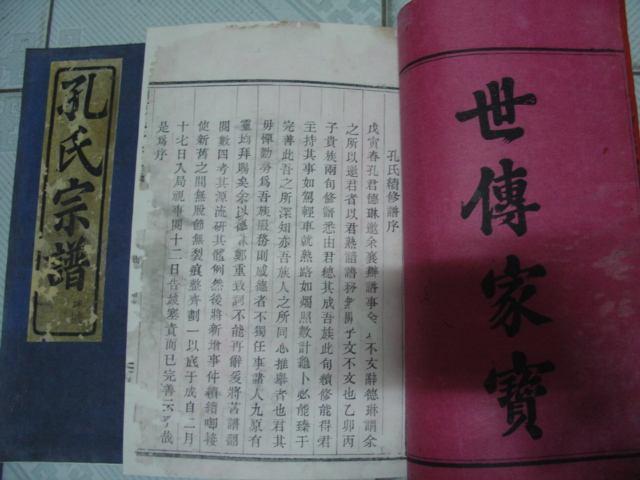 世傳家寶
孔氏續修譜序
戊寅春孔君德琳邀余襄辦譜事余以不文辭德琳謂余
之所以邀君省以君熟諳譜務
子文不文也乙卯丙
子貴族兩旬修譜悉由君總其成吾族此旬續修能得君
主持其事如駕輕車就熟路如燭照數計龜卜必能臻于
完善此吾之所深知亦吾族人之所同心推舉者也君其
毋憚勤勞爲吾族服務則感德者不獨任事諸人九原有
靈均拜賜矣余以德琳鄭重致詞不能再辭爰將舊譜翻
閱數四考其源流研其體例然後將新增事件續續啣接
使新舊之間無股節無裂痕整齊劃一以底于成自二月
十七日入局視事閱十二日告竣塞責而已完善云乎哉
是爲序
孔氏宗譜